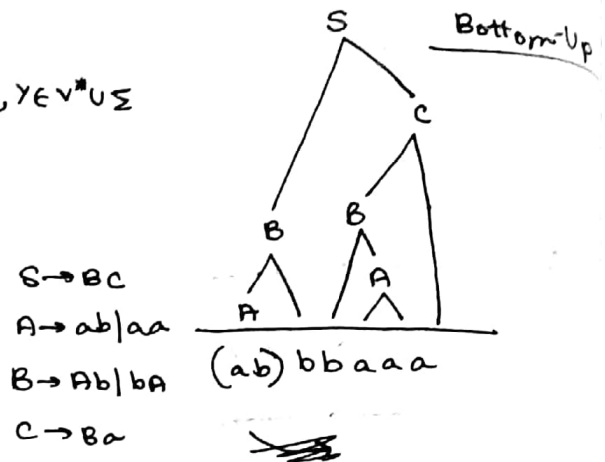 Bottom-Up
, Y∈ V* ∪ Σ
S
C
B
B
A
A
S→BC
A→ab|aa
B→Ab|bA
C→Ba
(ab) bbaaa